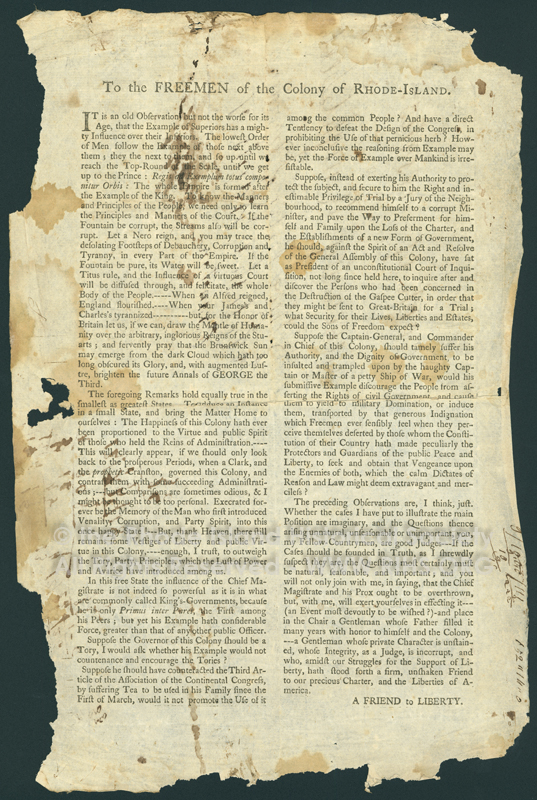 To the FREEMEN of the Colony of RHODE-ISLAND.
IT is an old Observation, but not the worse for its
Age, that the Example of Superiors has a migh-
ty Influence over their Inferiors. The lowest Order
of Men follow the Example of those next above
them; they the next to them, and so up until we
reach the Top-Round of the Scale, until we get
up to the Prince: Regis ad exemplum totus compo-
nitur Orbis: The whole Empire is formed after
the Example of the King. To know the Manners
and Principles of the People, we need only to learn
the Principles and Manners of the Court. If the
Fountain be corrupt, the Streams also will be cor-
rupt. Let a Nero reign, and you may trace the
desolating Footsteps of Debauchery, Corruption and
Tyranny, in every Part of the Empire. If the
Fountain be pure, its Waters will be sweet. Let a
Titus rule, and the Influence of a virtuous Court
will be diffused through, and felicitate, the whole
Body of the People.----When an Alfred reigned,
England flourished.----When your James's and
Charles's tyrannized---------but for the Honor of
Britain let us, if we can, draw the Mantle of Huma-
nity over the arbitrary, inglorious Reigns of the Stu-
arts; and fervently pray that the Brunswick Sun
may emerge from the dark Cloud which hath too
long obscured its Glory, and, with augmented Lus-
tre, brighten the future Annals of GEORGE the
Third.
The foregoing Remarks hold equally true in the
smallest as greatest States.
to a small State, and bring the Matter Home to
ourselves: The Happiness of this Colony hath ever
been proportioned to the Virtue and public Spirit
of those who held the Reins of Administration.----
This will clearly appear, if we should only look
back to the prosperous Periods, when a Clark, and
the Cranston, governed this Colony, and
contrast them with some succeeding Administrati-
ons;--but Comparisons are sometimes odious, & I
might be thought to be too personal. Execrated for-
ever be the Memory of the Man who first introduced
Venality, Corruption, and Party Spirit, into this
once happy State. But thanks to Heaven there still
remains some Vestiges of Liberty and public Vir-
tue in this Colony,----enough, I trust, to outweigh
the Tory, Party Principles, which the Lust of Power
and Avarice have introduced among us.
In this free State the influence of the Chief Ma-
gistrate is not indeed so powerful as it is in what
are commonly called King's-Governments, because
he is only Primus inter Pares, the First among
his Peers; but yet his Example hath considerable
Force, greater than that of any other public Officer.
Suppose the Governor of this Colony should be a
Tory, I would ask whether his Example would not
countenance and encourage the Tories?
Suppose he should have counteracted the Third Ar-
ticle of the Association of the Continental Congress,
by suffering Tea to be used in his Family since the
First of March, would it not promote the Use of it
among the common People? And have a direct
Tendency to defeat the Design of the Congress, in
prohibiting the Use of that pernicious herb? How-
ever inconclusive the reasoning from Example may
be, yet the Force of Example over Mankind is irre-
sistable.
Suppose, instead of exerting his Authority to pro-
tect the subject, and secure to him the Right and in-
estimable Privilege of Trial by a Jury of the Neigh-
bourhood, to recommend himself to a corrupt Mi-
nister, and pave the Way to Preferment for him-
self and Family upon the Loss of the Charter, and
the Establishments of a new Form of Government,
he should, against the Spirit of an Act and Resolve
of the General Assembly of this Colony, have sat
as President of an unconstitutional Court of Inqui-
sition, not long since held here, to inquire after and
discover the Persons who had been concerned in
the Destruction of the Gaspee Cutter, in order that
they might be sent to Great-Britain for a Trial;
what Security for their Lives, Liberties and Estates,
could the Sons of Freedom expect?
Suppose the Captain-General, and Commander
in Chief of this Colony, should tamely suffer his
Authority, and the Dignity of Government, to be
insulted and trampled upon by the haughty Cap-
tain or Master of a petty Ship of War, would his
submissive Example discourage the People from as-
serting the Rights of civil Government, and cause
them to yield to military Domination, or induce
them, transported by that generous Indignation
which Freemen ever sensibly feel when they per-
ceive themselves deserted by those whom the Consti-
tution of their Country hath made peculiarly the
Protectors and Guardians of the public Peace and
Liberty, to seek and obtain that Vengeance upon
the Enemies of both, which the calm Dictates of
Reason and Law might deem extravagant and mer-
ciless?
The preceding Observations are, I think, just.
Whether the cases I have put to illustrate the main
Position are imaginary, and the Questions thence
arising are impertinent, unseasonable or unimportant, you,
my Fellow-Countrymen, are good Judges--If the
Cases should be founded in Truth, as I shrewdly
suspect they are, the Questions will certainly then
be natural, reasonable, and important; and you
will not only join with me, in saying, that the Chief
Magistrate and his Prox ought to be overthrown,
but, with me, will exert yourselves in effecting it---
(an Event most devoutly to be wished?)-and place
in the Chair a Gentleman whose Father filled it
many years with honor to himself and the Colony,
---a Gentleman whose private Character is unstain-
ed, whose Integrity, as a Judge, is incorrupt, and
who, amidst our Struggles for the Support of Li-
berty, hath stood forth a firm, unshaken Friend
to our precious Charter, and the Liberties of A-
merica.
A FRIEND to LIBERTY.